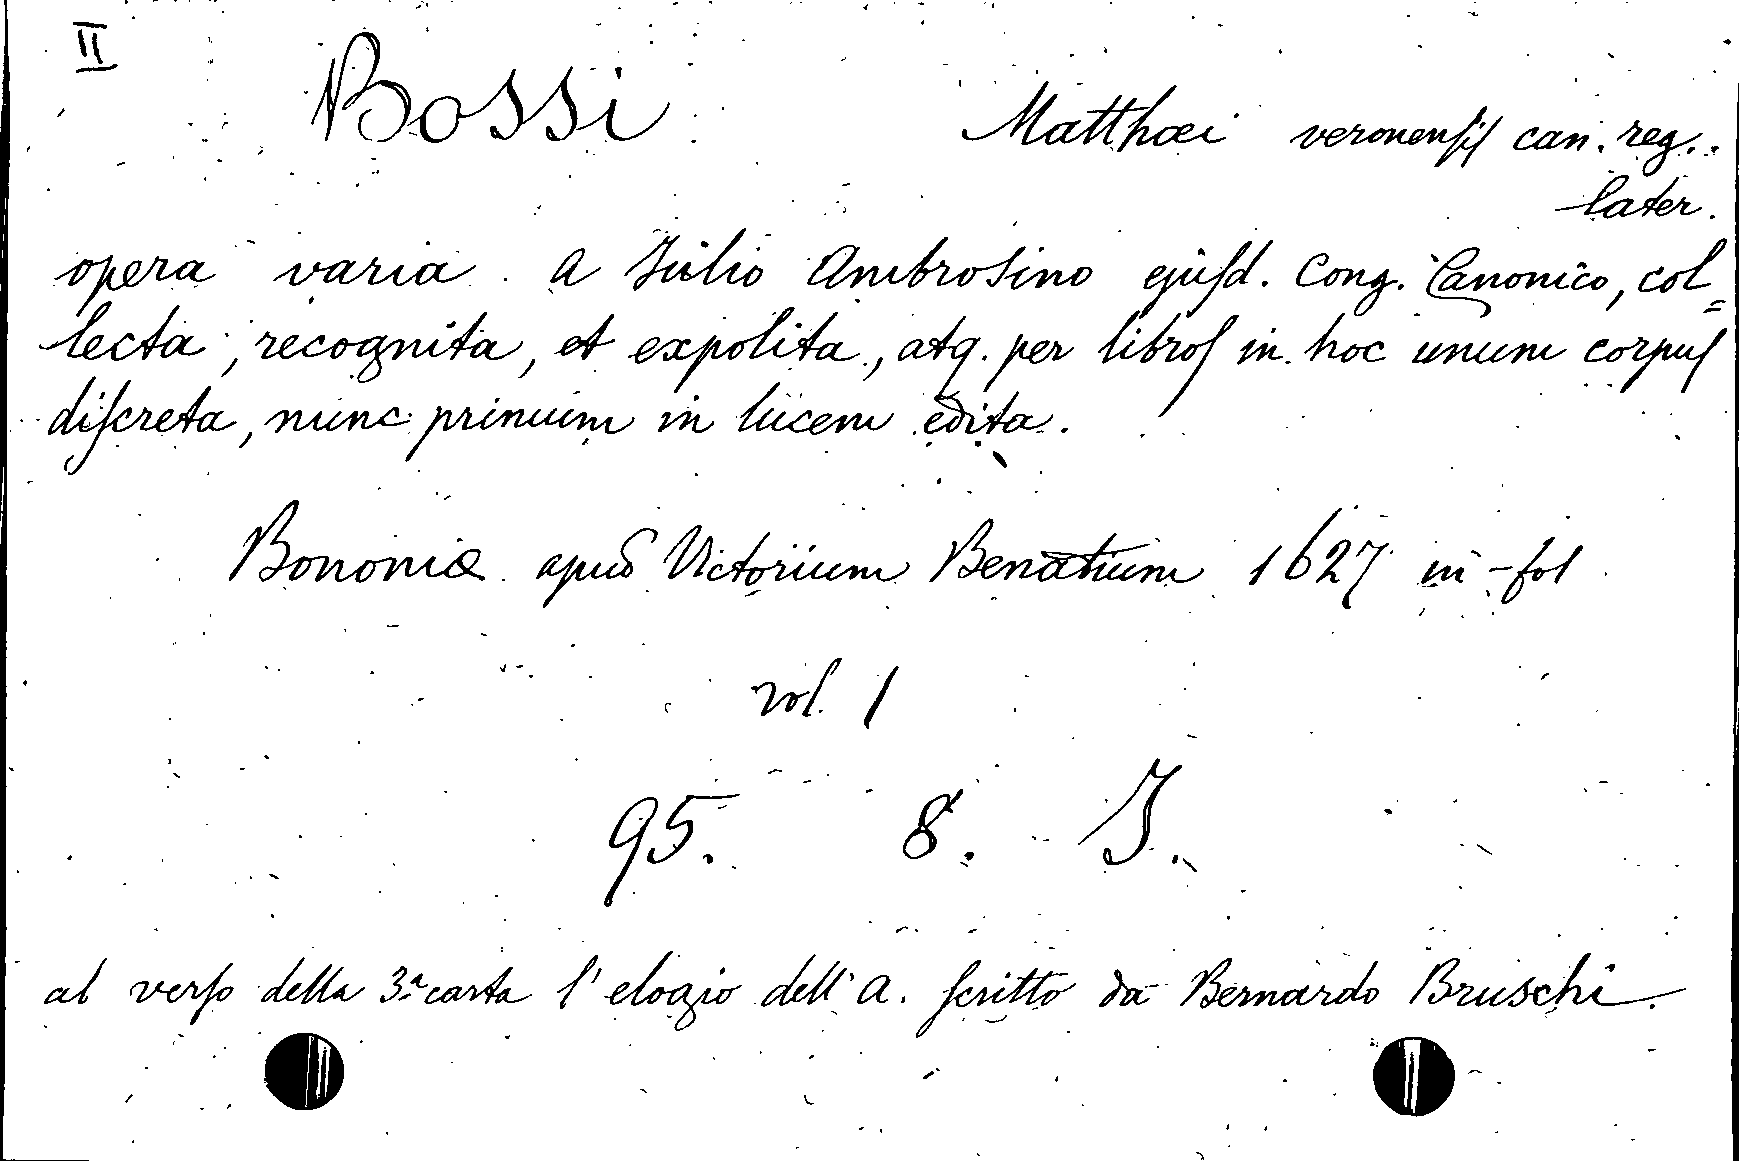 II
Bossi Matthæi veronenſiſ can. reg..
later.
opera varia. a Julio Ambrosino ejuſd. Cong. Canonico, col=
lecta, recognita, et expolita, atq. per libroſ in hoc unum corpuſ
diſcreta, nunc primum in lucem edita.
Bononiæ apud Victorium Benatium 1627 in-fol
vol. 1
95. 8. J.
al verſo della 3ª carta l'elogio dell'a. ſcritto da Bernardo Bruschi.